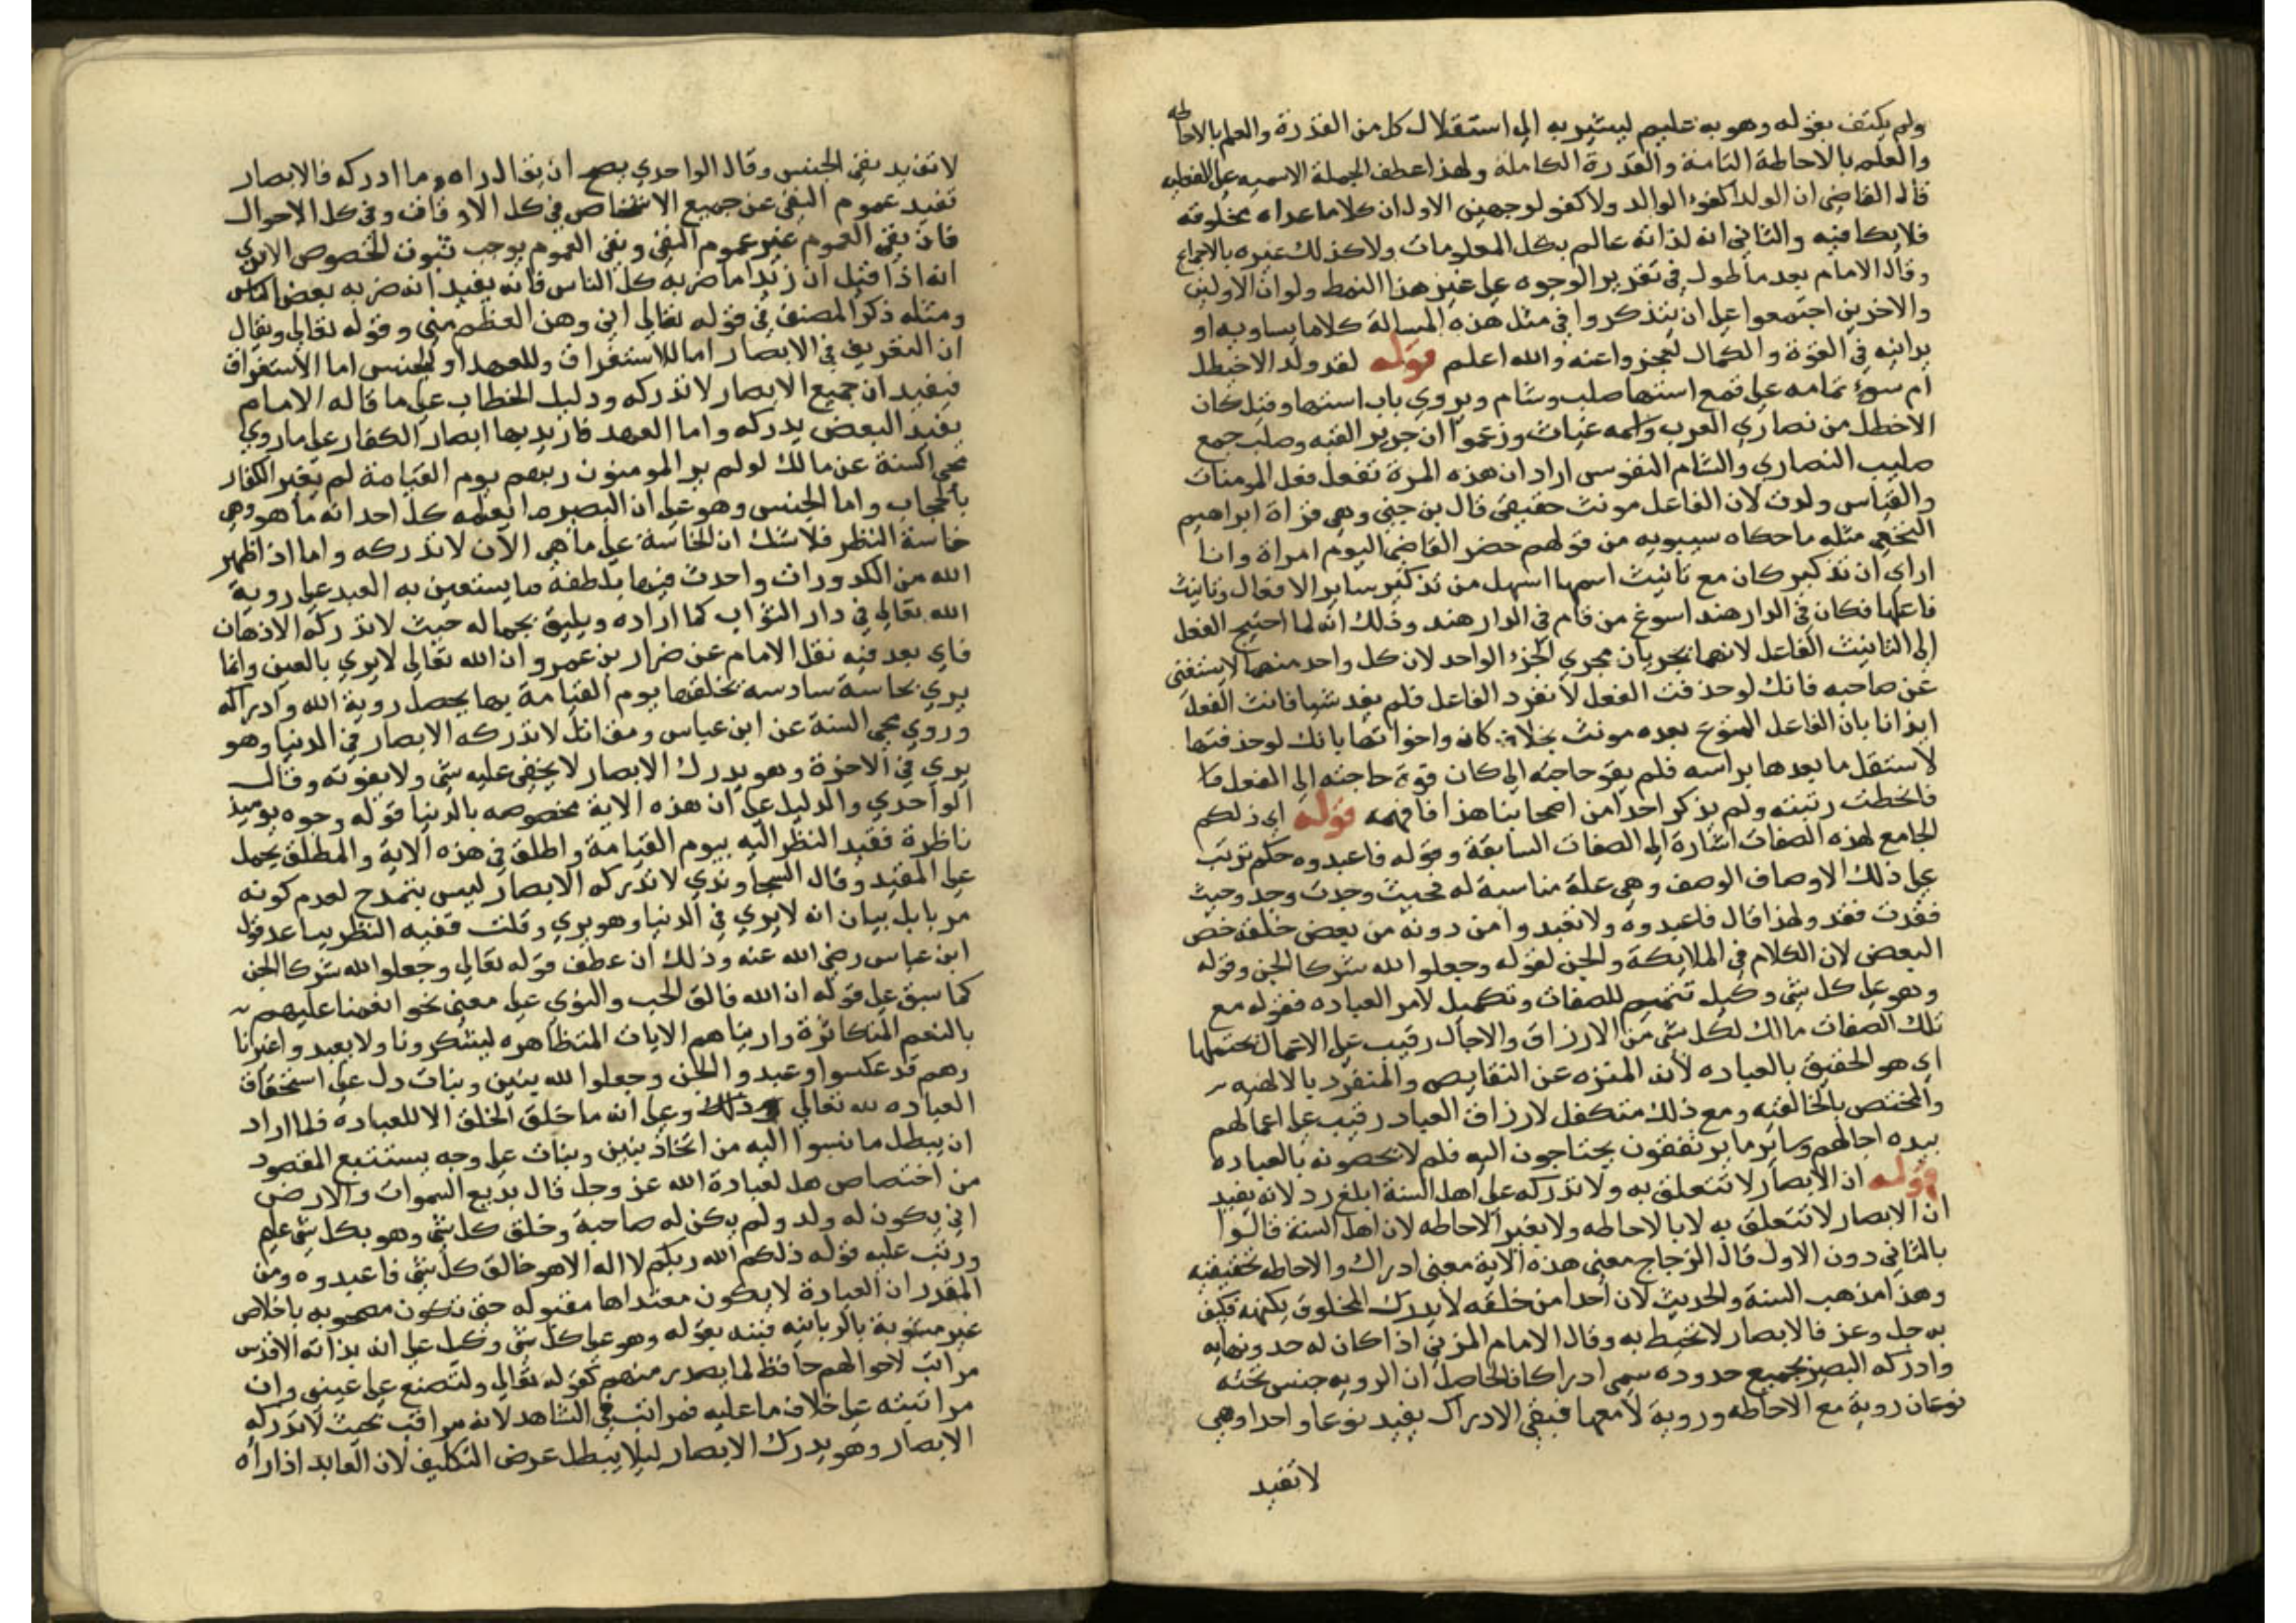 ولم يكتف بقوله وهو به عليم ليشير به الى استقلال كل من القدرة والعلم بالاحاطه
والعلم بالاحاطة التامة والقدرة الكاملة ولهذا عطف الجملة الاسميه على الفعليه
قال القاضي ان الولد كفوء الوالد ولا كفو لوجهين الاول ان كلا ما عداه مخلوقه
فلا يكافيه والثاني انه لذاته عالم بكل المعلومات ولا كذلك غيره بالاجماع
وقال الامام بعد ما طول في تقدير الوجوه على غير هذا النمط ولو ان الاولين
والاخرين اجتمعوا على ان يتذكروا في مثل هذه المسالة كلاما يساويه او
يدانيه في القوة والكمال لعجزوا عنه والله اعلم قوله لقد ولد الاخيطل
ام سوء تمامه على قمع استها صلب وشام ويروي باب استها وقيل كان
الاخطل من نصاري العرب واسمه غياث وزعموا ان جرير القبه وصلب جمع
صليب النصاري والشام النفوس اراد ان هذه المرة تفعل فعل المومنات
والقياس ولدت لان الفاعل مونث حقيقي قال بن جني وهي قراة ابراهيم
النخعي مثله ما حكاه سيبويه من قولهم حضر القاضي اليوم امراة وانا
اراي ان تذكير كان مع تانيث اسمها اسهل من تذكير ساير الافعال وتانيث
فاعلها فكان في الدار هند اسوغ من قام في الدار هند وذلك انه لما احتيج الفعل
الى التانيث الفاعل لانهما يجريان مجري الجزء الواحد لان كل واحد منهما لا يستغني
عن صاحبه فانك لو حذفت الفعل لانفرد الفاعل فلم يفد شيا فانث الفعل
ايذانا بان الفاعل المنوع بعده مونث بخلاف كان واخواتها بانك لو حذفتها
لاستقل ما بعدها براسه فلم يقو حاجته الى كان قوة حاجته الى الفعل فا
فانحطت رتبته ولم يذكر احدا من اصحابنا هذا فافهمه قوله اي ذلكم
الجامع لهذه الصفات اشارة الى الصفات السابقة وقوله فاعبدوه حكم ترتب
على ذلك الاوصاف الوصف وهي علة مناسبة له فحيث وجدت وجد وحيث
فقدت فقد ولهذا قال فاعبدوه ولا تعبدوا من دونه من بعض خلقه خص
البعض لان الكلام في الملايكة والجن لقوله وجعلوا لله شركا الجن وقوله
وهو على كل شي وكيل تتميم للصفات وتكميل لامر العباده فقوله مع
تلك الصفات مالك لكل شي من الارزاق والاجال رقيب على الاعمال يحتملها
اي هو الحقيق بالعباده لانه المنزه عن النقايص والمنفرد بالالهيه
والمختص بالخالقيه ومع ذلك متكفل لارزاق العباد رقيب على اعمالهم
بيده اجالهم وساير ما يرتفقون يحتاجون اليه فلم لا تخصونه بالعباده
قوله ان الابصار لا تتعلق به ولا تدركه على اهل السنة ابلغ رد لانه يفيد
ان الابصار لا تتعلق به لا بالاحاطه ولا بغير الاحاطه لان اهل السنة قالوا
بالثاني دون الاول قال الزجاج معني هذه الاية معني ادراك والاحاطه بحقيقته
وهذا مذهب السنة والحديث لان احدا من خلقه لا يدرك المخلوق بكنهه فكيف
به جل وعز فالابصار لا تحيط به وقال الامام المزني اذا كان له حد ونهايه
وادركه البصر بجميع حدوده سمى ادراكا فالحاصل ان الرويه جنس تحته
نوعان روية مع الاحاطه وروية لا معها فنفي الادراك يفيد نوعا واحدا وهي
لا تفيد
لا تفيد نفي الجنس وقال الواحدي يصح ان يقال راه وما ادركه فالابصار
تفيد عموم النفي عن جميع الاشخاص في كل الاوقات وفي كل الاحوال
فان نفي العموم غير عموم النفي ونفي العموم يوجب ثبوت الخصوص الا تري
انه اذا قيل ان زيدا ما ضربه كل الناس فانه يفيد انه ضربه بعض الناس
ومثله ذكر المصنف في قوله تعالى اني وهن العظم مني وقوله تعالى ويقال
ان التعريف في الابصار اما للاستغراق وللعهد او للجنس اما الاستغراق
فيفيد ان جميع الابصار لا تدركه ودليل الخطاب على ما قاله الامام
يفيد البعض يدركه واما العهد فاريد بها ابصار الكفار على ما روي
محي السنة عن مالك لو لم ير المومنون ربهم يوم القيامة لم يعير الكفار
بالحجاب واما الجنس وهو على ان البصر ما يعلمه كل احد انه ما هو وهي
خاسة النظر فلا شك ان الخاسة على ما هي الآن لا تدركه واما اذ اظهر
الله من الكدورات واحدث فيها بلطفه ما يستعين به العبد على روية
الله تعالى في دار الثواب كما اراده ويليق بجماله حيث لا تدركه الاذهان
فاي بعد فيه نقل الامام عن ضرار بن عمرو ان الله تعالى لا يري بالعين وانما
يري بحاسة سادسه يخلقها يوم القيامة بها يحصل روية الله وادراكه
وروي محي السنة عن ابن عباس ومقاتل لا تدركه الابصار في الدنيا وهو
يري في الاخرة وهو يدرك الابصار لا يخفى عليه شي ولا يفوته وقال
الواحدي والدليل على ان هذه الاية مخصوصه بالدنيا قوله وجوه يوميذ
ناظرة فقيد النظر اليه بيوم القيامة واطلق في هذه الاية والمطلق يحمل
على المقيد وقال السجاوندي لا تدركه الابصار ليس بتمدح لعدم كونه
مر بابل بيان انه لا يري في الدنيا وهو يري وقلت فقيه النظر يساعد قول
ابن عباس رضي الله عنه وذلك ان عطف قوله تعالى وجعلوا لله شركا الجن
كما سبق على قوله ان الله فالق الحب والنوي على معني نحو انعمنا عليهم
بالنعم المتكاثرة واريناهم الايات المتظاهره ليشكرونا ولا يعبدوا غيرنا
وهم قد عكسوا وعبدوا الجن وجعلوا لله بنين وبنات دل على استحقاق
العباده لله تعالى وعلى انه ما خلق الخلق الا للعباده فلما اراد
ان يبطل ما نسبوا اليه من اتخاذ بنين وبنات على وجه يستتبع المقصود
من اختصاص هل لعبادة الله عز وجل قال بديع السموات والارض
اني يكون له ولد ولم يكن له صاحبة وخلق كل شي وهو بكل شي عليم
ورتب عليه قوله ذلكم الله ربكم لا اله الا هو خالق كل شي فاعبدوه ومن
المقرر ان العبادة لا يكون معتداها مقبوله حتى تكون مصحوبه باخلاص
غير مشوبة بالريا نبه بقوله وهو على كل شي وكيل على انه بذاته الاقدس
مراتب لاحوالهم حافظ لما يصدر منهم كقوله تعالى ولتصنع على عيني وان
مراتبته على خلاف ما عليه فمراتب في الشاهد لانه مراقب بحيث لا تدركه
الابصار وهو يدرك الابصار ليلا يبطل عرض التكليف لان العابد اذا راه